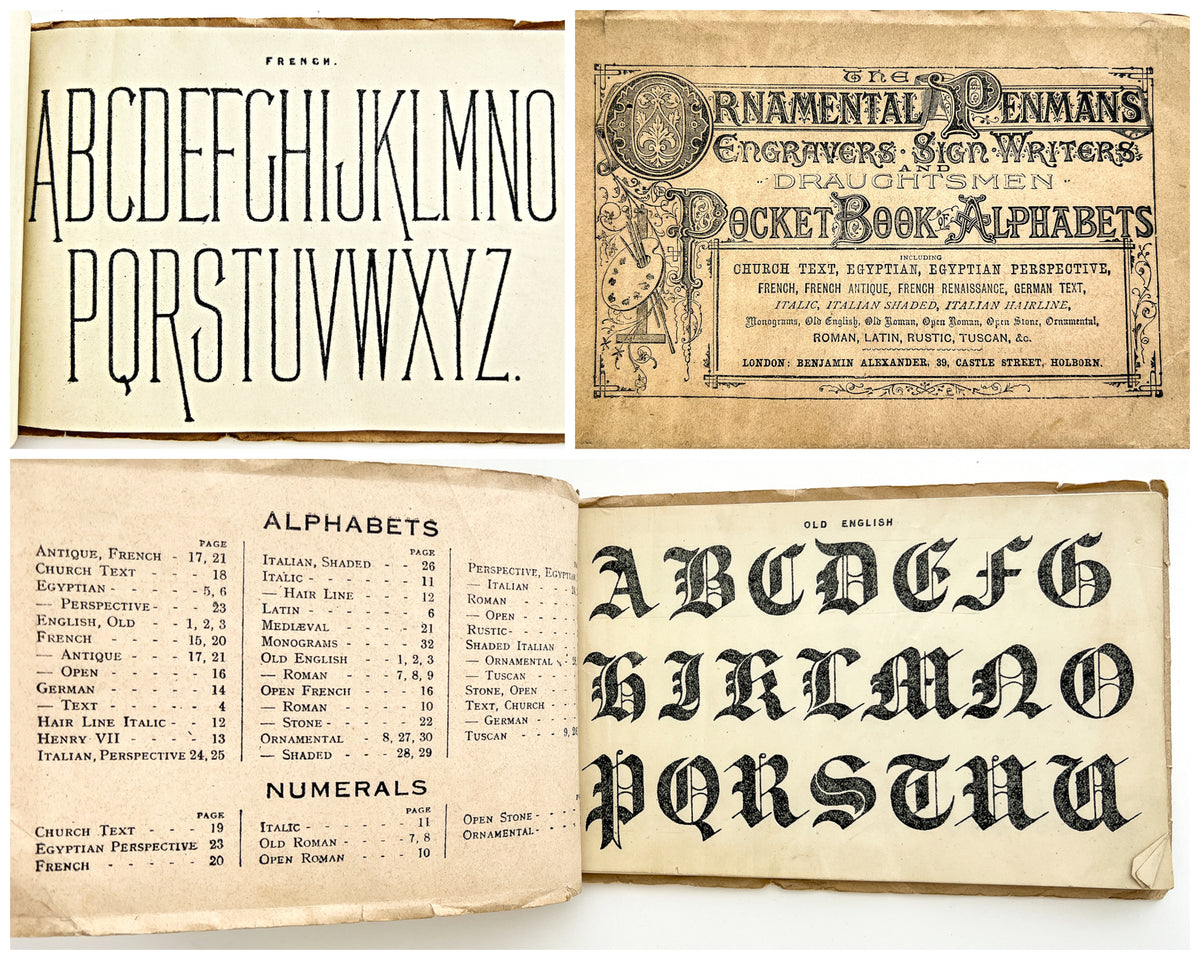 FRENCH.
ABCDEFGHIJKLMNO
PQRSTUVWXYZ.
THE
ORNAMENTAL PENMAN'S
ENGRAVERS · SIGN · WRITERS
AND
·· DRAUGHTSMEN ··
POCKET BOOK OF ALPHABETS
INCLUDING
CHURCH TEXT, EGYPTIAN, EGYPTIAN PERSPECTIVE,
FRENCH, FRENCH ANTIQUE, FRENCH RENAISSANCE, GERMAN TEXT,
ITALIC, ITALIAN SHADED, ITALIAN HAIRLINE,
Monograms, Old English, Old Roman, Open Roman, Open Stone, Ornamental,
ROMAN, LATIN, RUSTIC, TUSCAN, &c.
LONDON: BENJAMIN ALEXANDER, 39, CASTLE STREET, HOLBORN.
ALPHABETS
PAGE
ANTIQUE, FRENCH - 17, 21
CHURCH TEXT - - - 18
EGYPTIAN - - - - 5, 6
— PERSPECTIVE - - - 23
ENGLISH, OLD - - 1, 2, 3
FRENCH - - - - 15, 20
— ANTIQUE - - - 17, 21
— OPEN - - - - 16
GERMAN - - - - 14
— TEXT - - - - 4
HAIR LINE ITALIC - - 12
HENRY VII - - - - 13
ITALIAN, PERSPECTIVE 24, 25
PAGE
ITALIAN, SHADED - - 26
ITALIC - - - - - 11
— HAIR LINE - - - 12
LATIN - - - - - 6
MEDIÆVAL - - - - 21
MONOGRAMS - - - - 32
OLD ENGLISH - - 1, 2, 3
— ROMAN - - - 7, 8, 9
OPEN FRENCH - - - 16
— ROMAN - - - - 10
— STONE - - - - 22
ORNAMENTAL - 8, 27, 30
— SHADED - - - 28, 29
PERSPECTIVE,
— ITALIAN - - -
ROMAN - - - -
— OPEN - - - -
RUSTIC - - - -
SHADED ITALIAN
— ORNAMENTAL
— TUSCAN - - -
STONE, OPEN - -
TEXT, CHURCH - -
— GERMAN - - -
TUSCAN - - -
NUMERALS
PAGE
CHURCH TEXT - - - 19
EGYPTIAN PERSPECTIVE 23
FRENCH - - - - - 20
PAGE
ITALIC - - - - - 11
OLD ROMAN - - - - 7, 8
OPEN ROMAN - - - 10
OPEN STONE - -
ORNAMENTAL - -
OLD ENGLISH
ABCDEFG
HIKLMNO
PQRSTUU